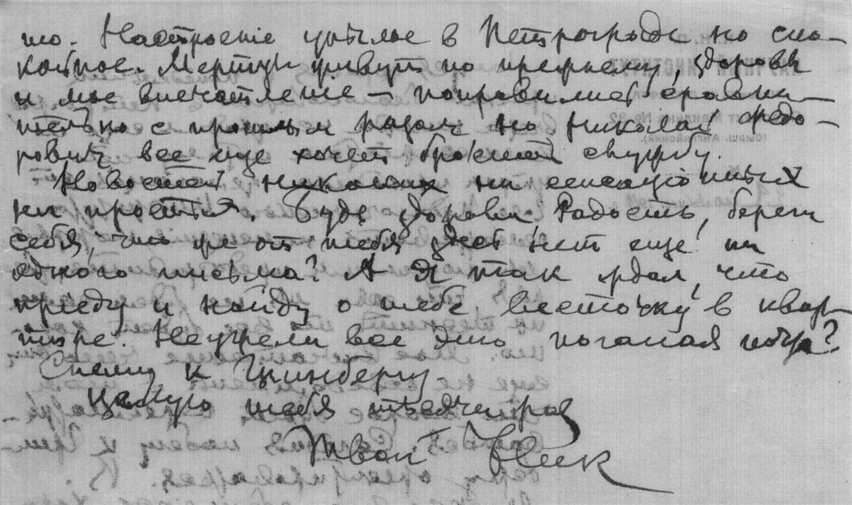 то. Настроение унылое в Петрограде но спо-
койное. Мертцы живут по прежнему, здоровы
и мое впечатление — поправились сравни-
тельно с прошлым разом но Николай Федо-
рович все еще хочет бросить службу.
Новостей никаких ни сенсационных
ни простых. Будь здорова Радость, береги
себя, что же от тебя здесь нет еще ни
одного письма? А я так ждал, что
приеду и найду о тебе весточку в квар-
тире. Неужели все это поганая почта?
Спешу к Гринбергу.
Целую тебя раз
Твой Ник